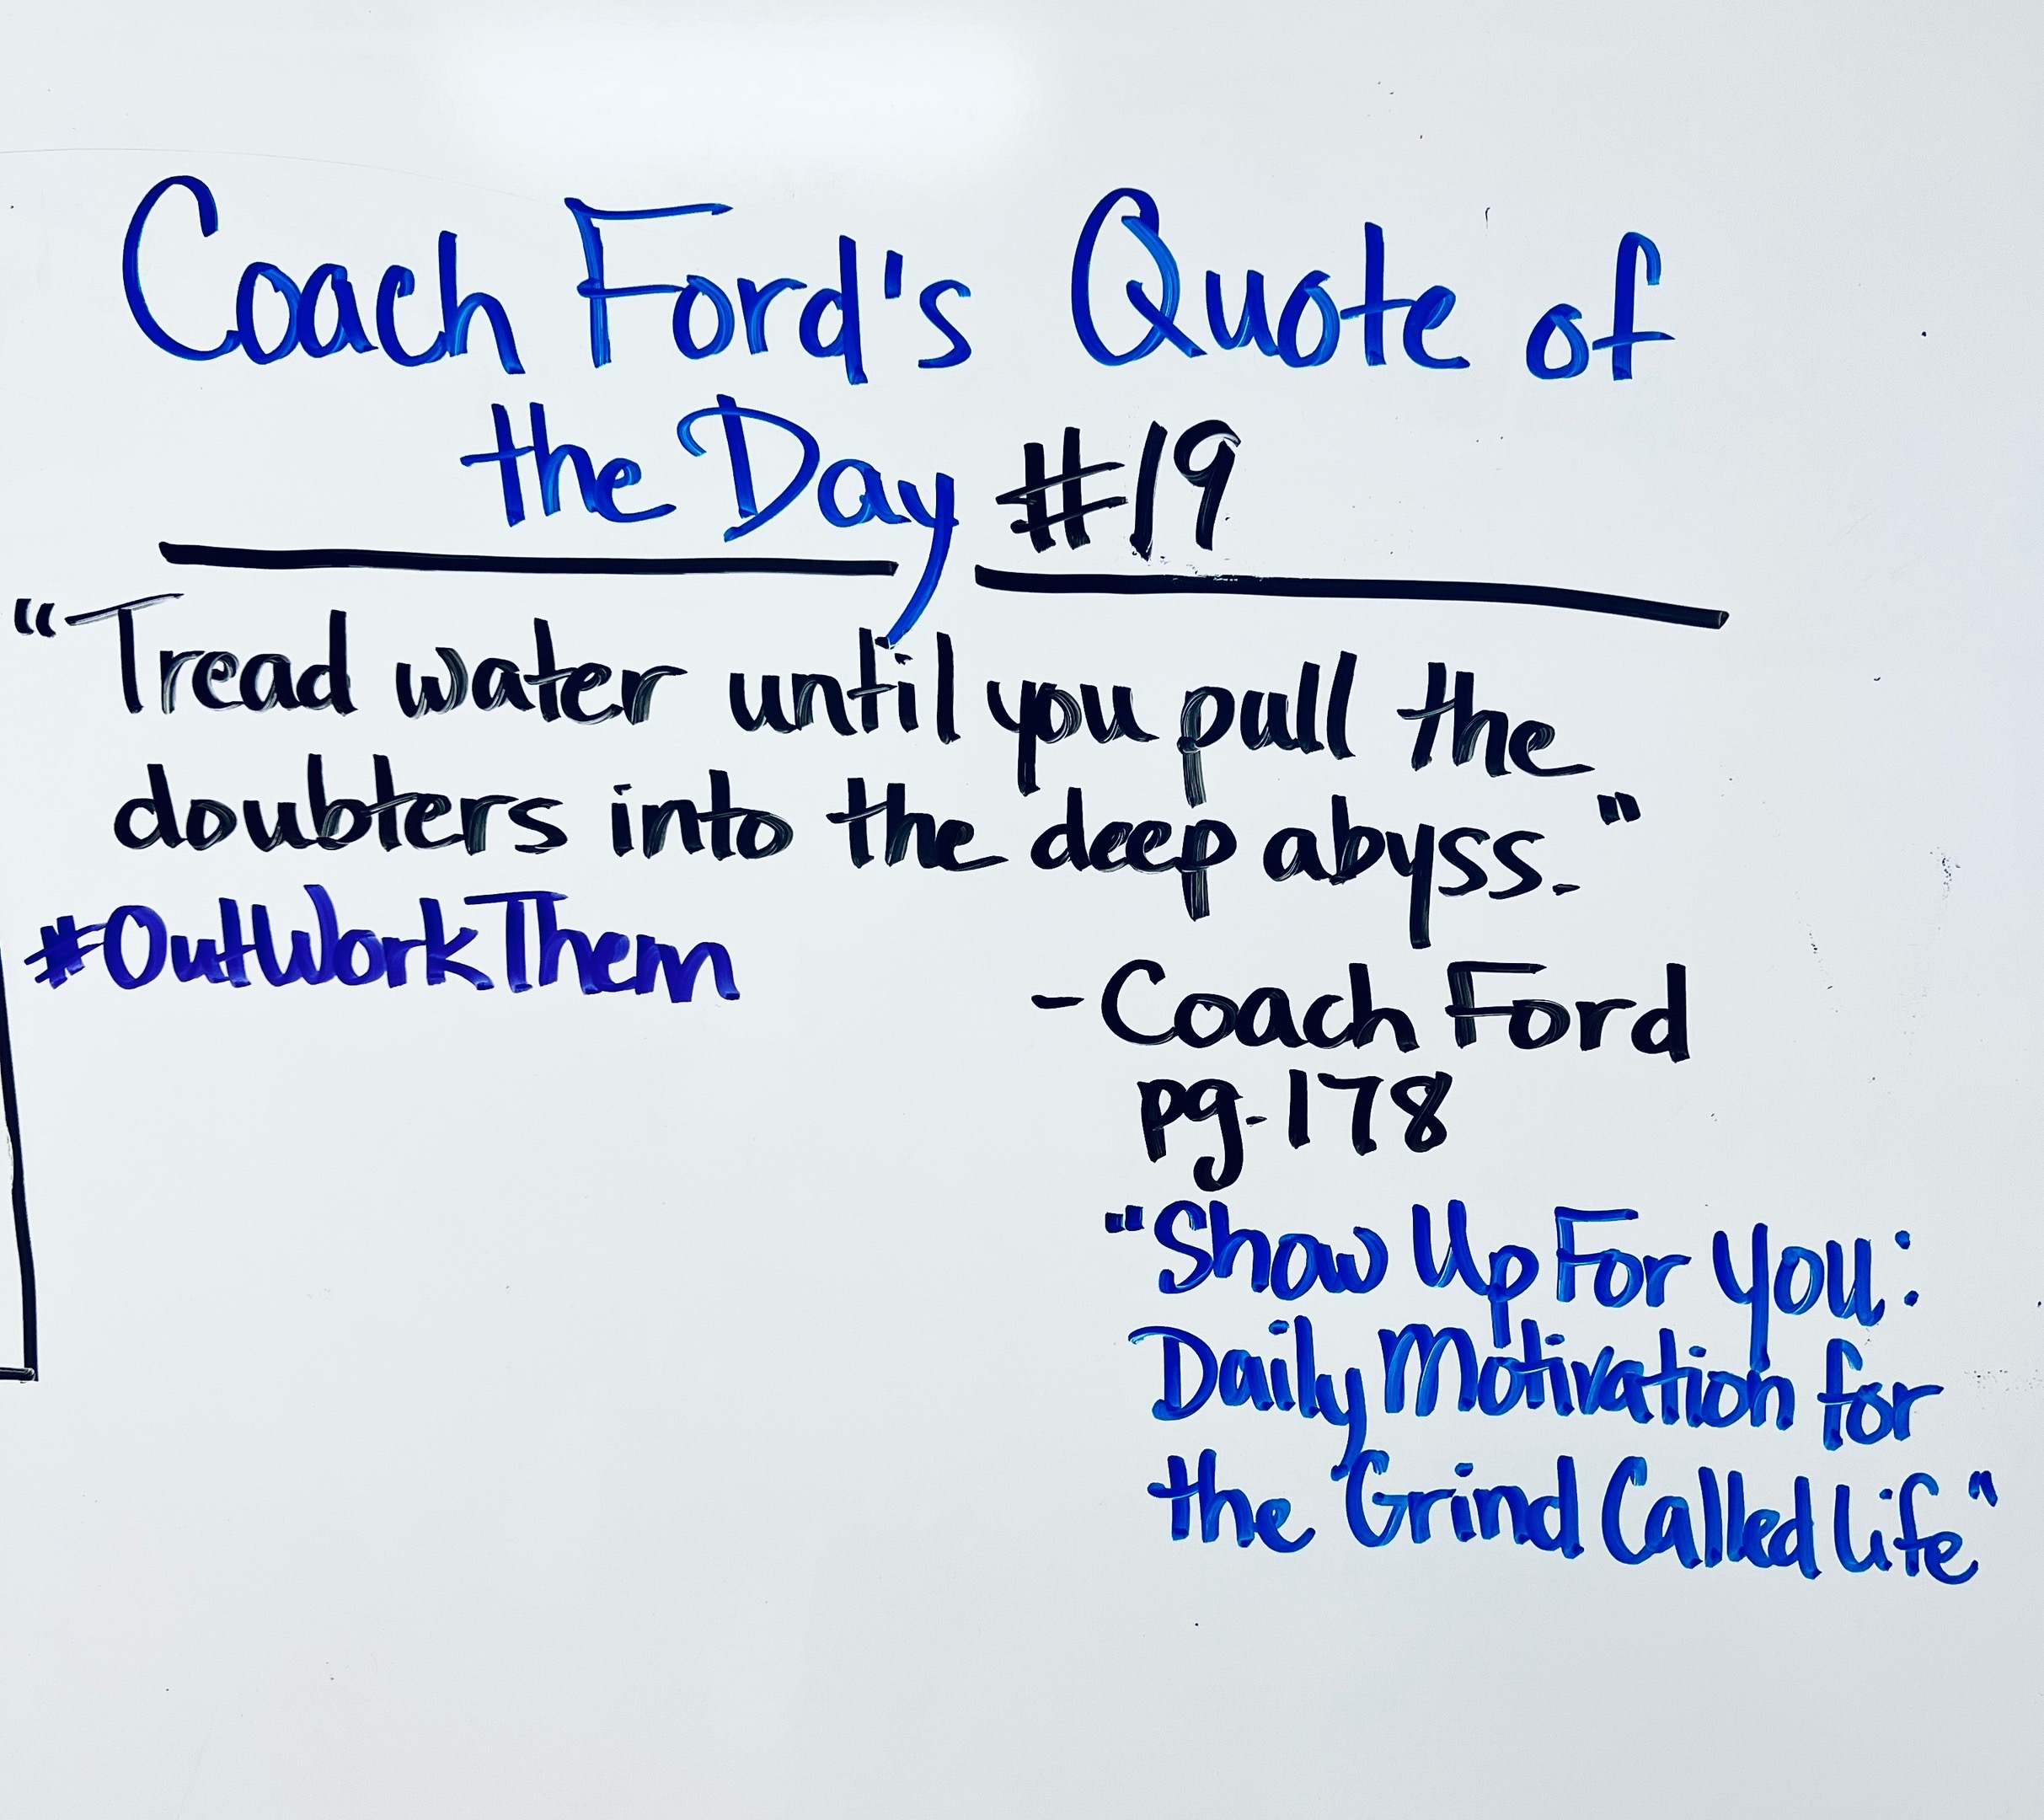 Coach Ford's Quote of
the Day #19
"Tread water until you pull the
doubters into the deep abyss."
#OutWorkThem
- Coach Ford
pg. 178
"Show Up For You:
Daily Motivation for
the Grind Called Life"